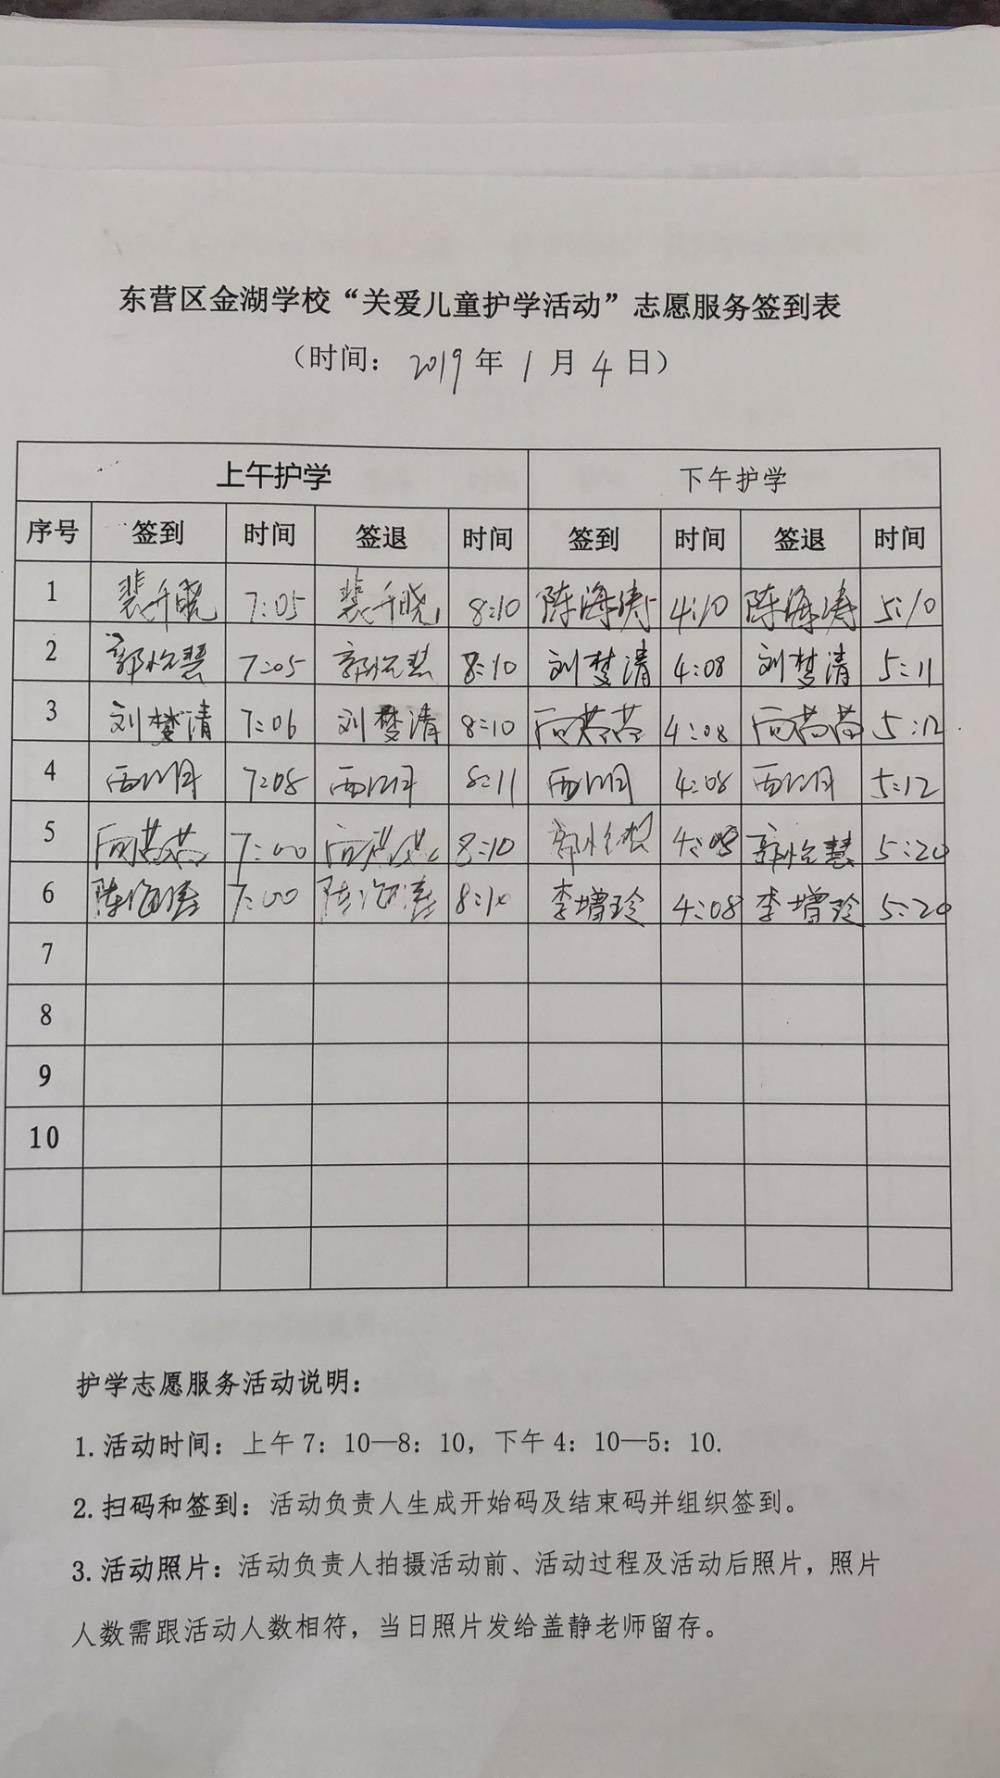 东营区金湖学校“关爱儿童护学活动”志愿服务签到表
（时间：2019年1月4日）
上午护学 下午护学
序号 签到 时间 签退 时间 签到 时间 签退 时间
1 7:05 8:10 陈海涛 4:10 陈海涛 5:10
2 7:05 8:10 刘梦清 4:08 刘梦清 5:11
3 刘梦清 7:06 刘梦清 8:10 4:08 5:12
4 7:08 8:11 4:08 5:12
5 7:00 8:10 4:08 5:20
6 陈海涛 7:00 陈海涛 8:10 李增玲 4:08 李增玲 5:20
7
8
9
10
护学志愿服务活动说明：
1.活动时间：上午7：10—8：10，下午4：10—5：10.
2.扫码和签到：活动负责人生成开始码及结束码并组织签到。
3.活动照片：活动负责人拍摄活动前、活动过程及活动后照片，照片
人数需跟活动人数相符，当日照片发给盖静老师留存。